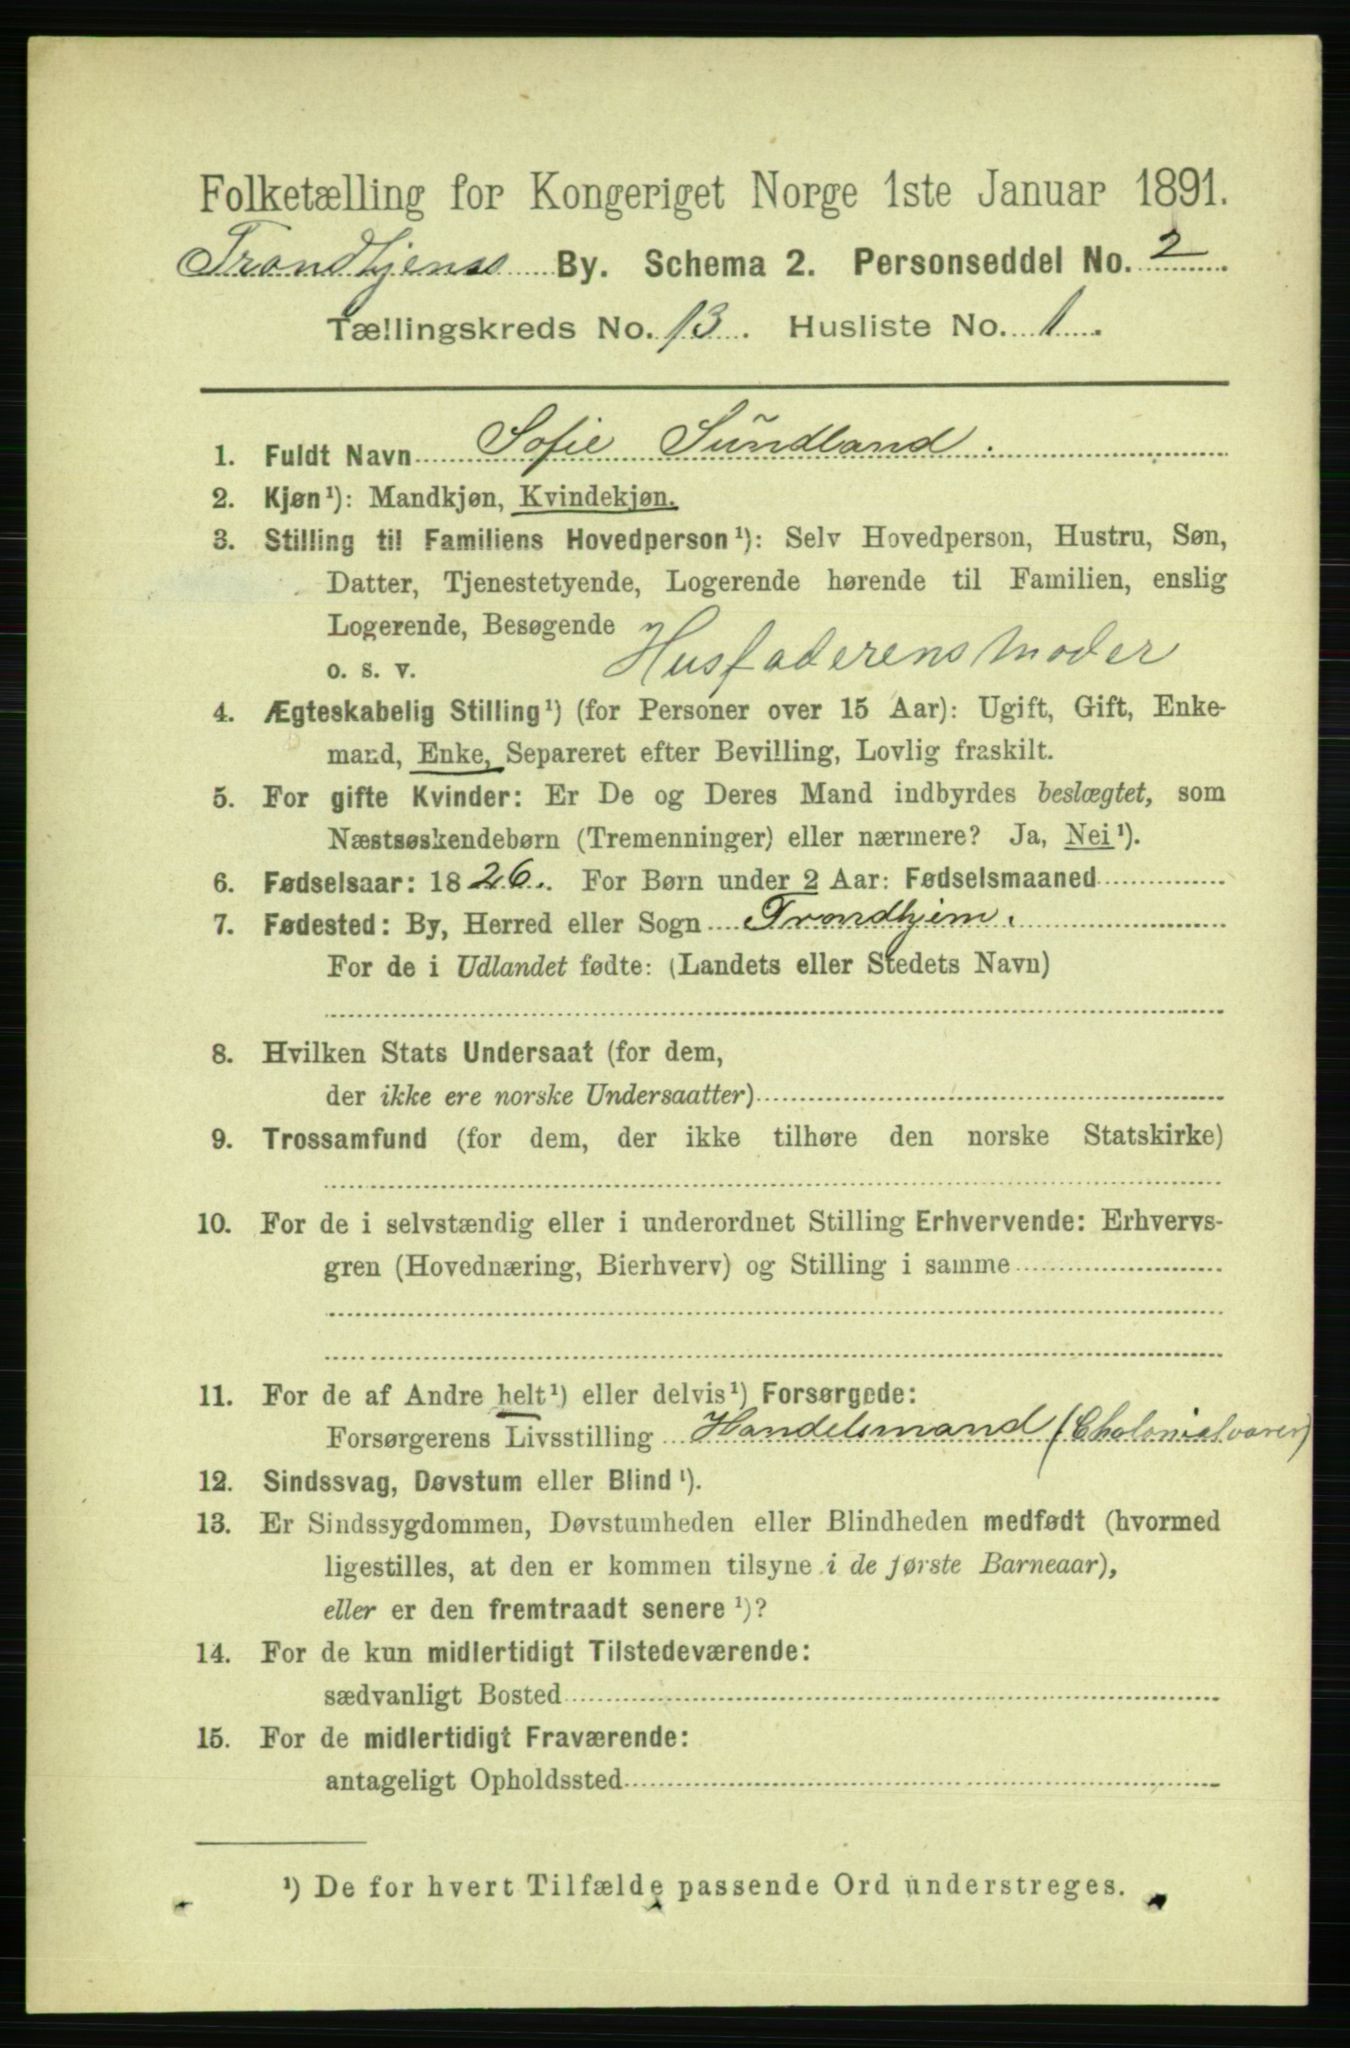 Folketælling for Kongeriget Norge 1ste Januar 1891.
Trondhjems By. Schema 2. Personseddel No. 2
Tællingskreds No. 13. Husliste No. 1.
1. Fuldt Navn Sofie Sundland.
2. Kjøn¹): Mandkjøn, Kvindekjøn.
3. Stilling til Familiens Hovedperson¹): Selv Hovedperson, Hustru, Søn,
Datter, Tjenestetyende, Logerende hørende til Familien, enslig
Logerende, Besøgende
o. s. v. Husfaderens Moder
4. Ægteskabelig Stilling¹) (for Personer over 15 Aar): Ugift, Gift, Enke-
mand, Enke, Separeret efter Bevilling, Lovlig fraskilt.
5. For gifte Kvinder: Er De og Deres Mand indbyrdes beslægtet, som
Næstsøskendebørn (Tremenninger) eller nærmere? Ja, Nei¹).
6. Fødselsaar: 1826. For Børn under 2 Aar: Fødselsmaaned
7. Fødested: By, Herred eller Sogn Trondhjem.
For de i Udlandet fødte: (Landets eller Stedets Navn)
8. Hvilken Stats Undersaat (for dem,
der ikke ere norske Undersaatter)
9. Trossamfund (for dem, der ikke tilhøre den norske Statskirke)
10. For de i selvstændig eller i underordnet Stilling Erhvervende: Erhvervs-
gren (Hovednæring, Bierhverv) og Stilling i samme
11. For de af Andre helt¹) eller delvis¹) Forsørgede:
Forsørgerens Livsstilling Handelsmand (Cholonialvarer)
12. Sindssvag, Døvstum eller Blind¹).
13. Er Sindssygdommen, Døvstumheden eller Blindheden medfødt (hvormed
ligestilles, at den er kommen tilsyne i de første Barneaar),
eller er den fremtraadt senere¹)?
14. For de kun midlertidigt Tilstedeværende:
sædvanligt Bosted
15. For de midlertidigt Fraværende:
antageligt Opholdssted
¹) De for hvert Tilfælde passende Ord understreges.